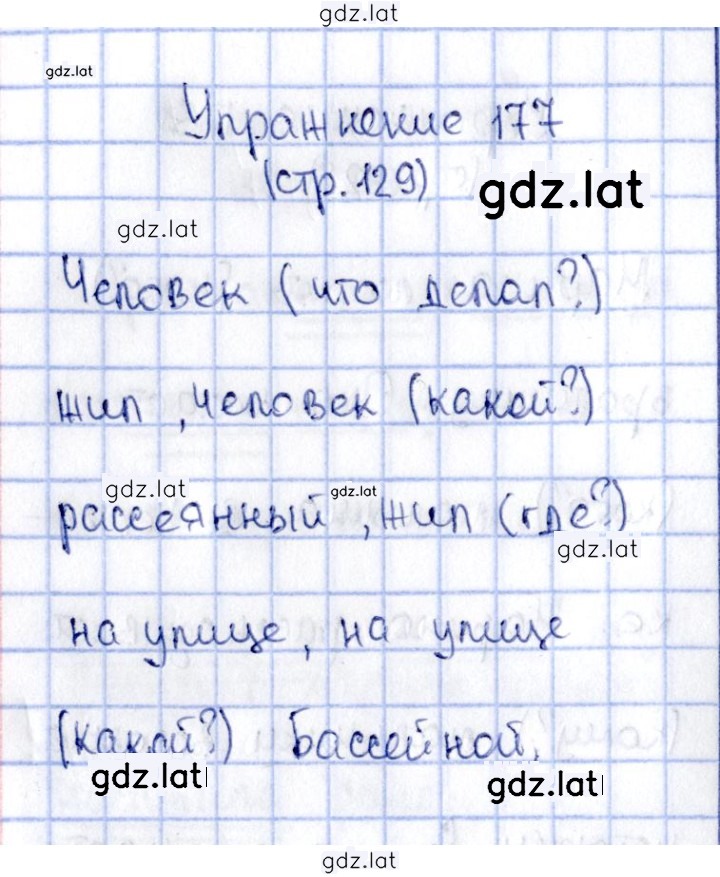 gdz.lat
gdz.lat
Упражнение 177
(стр. 129)
gdz.lat
gdz.lat
Человек (что делал?)
жил , человек (какой?)
gdz.lat
gdz.lat
рассеянный , жил (где?)
gdz.lat
на улице, на улице
(какой?) Бассейной.
gdz.lat
gdz.lat
gdz.lat